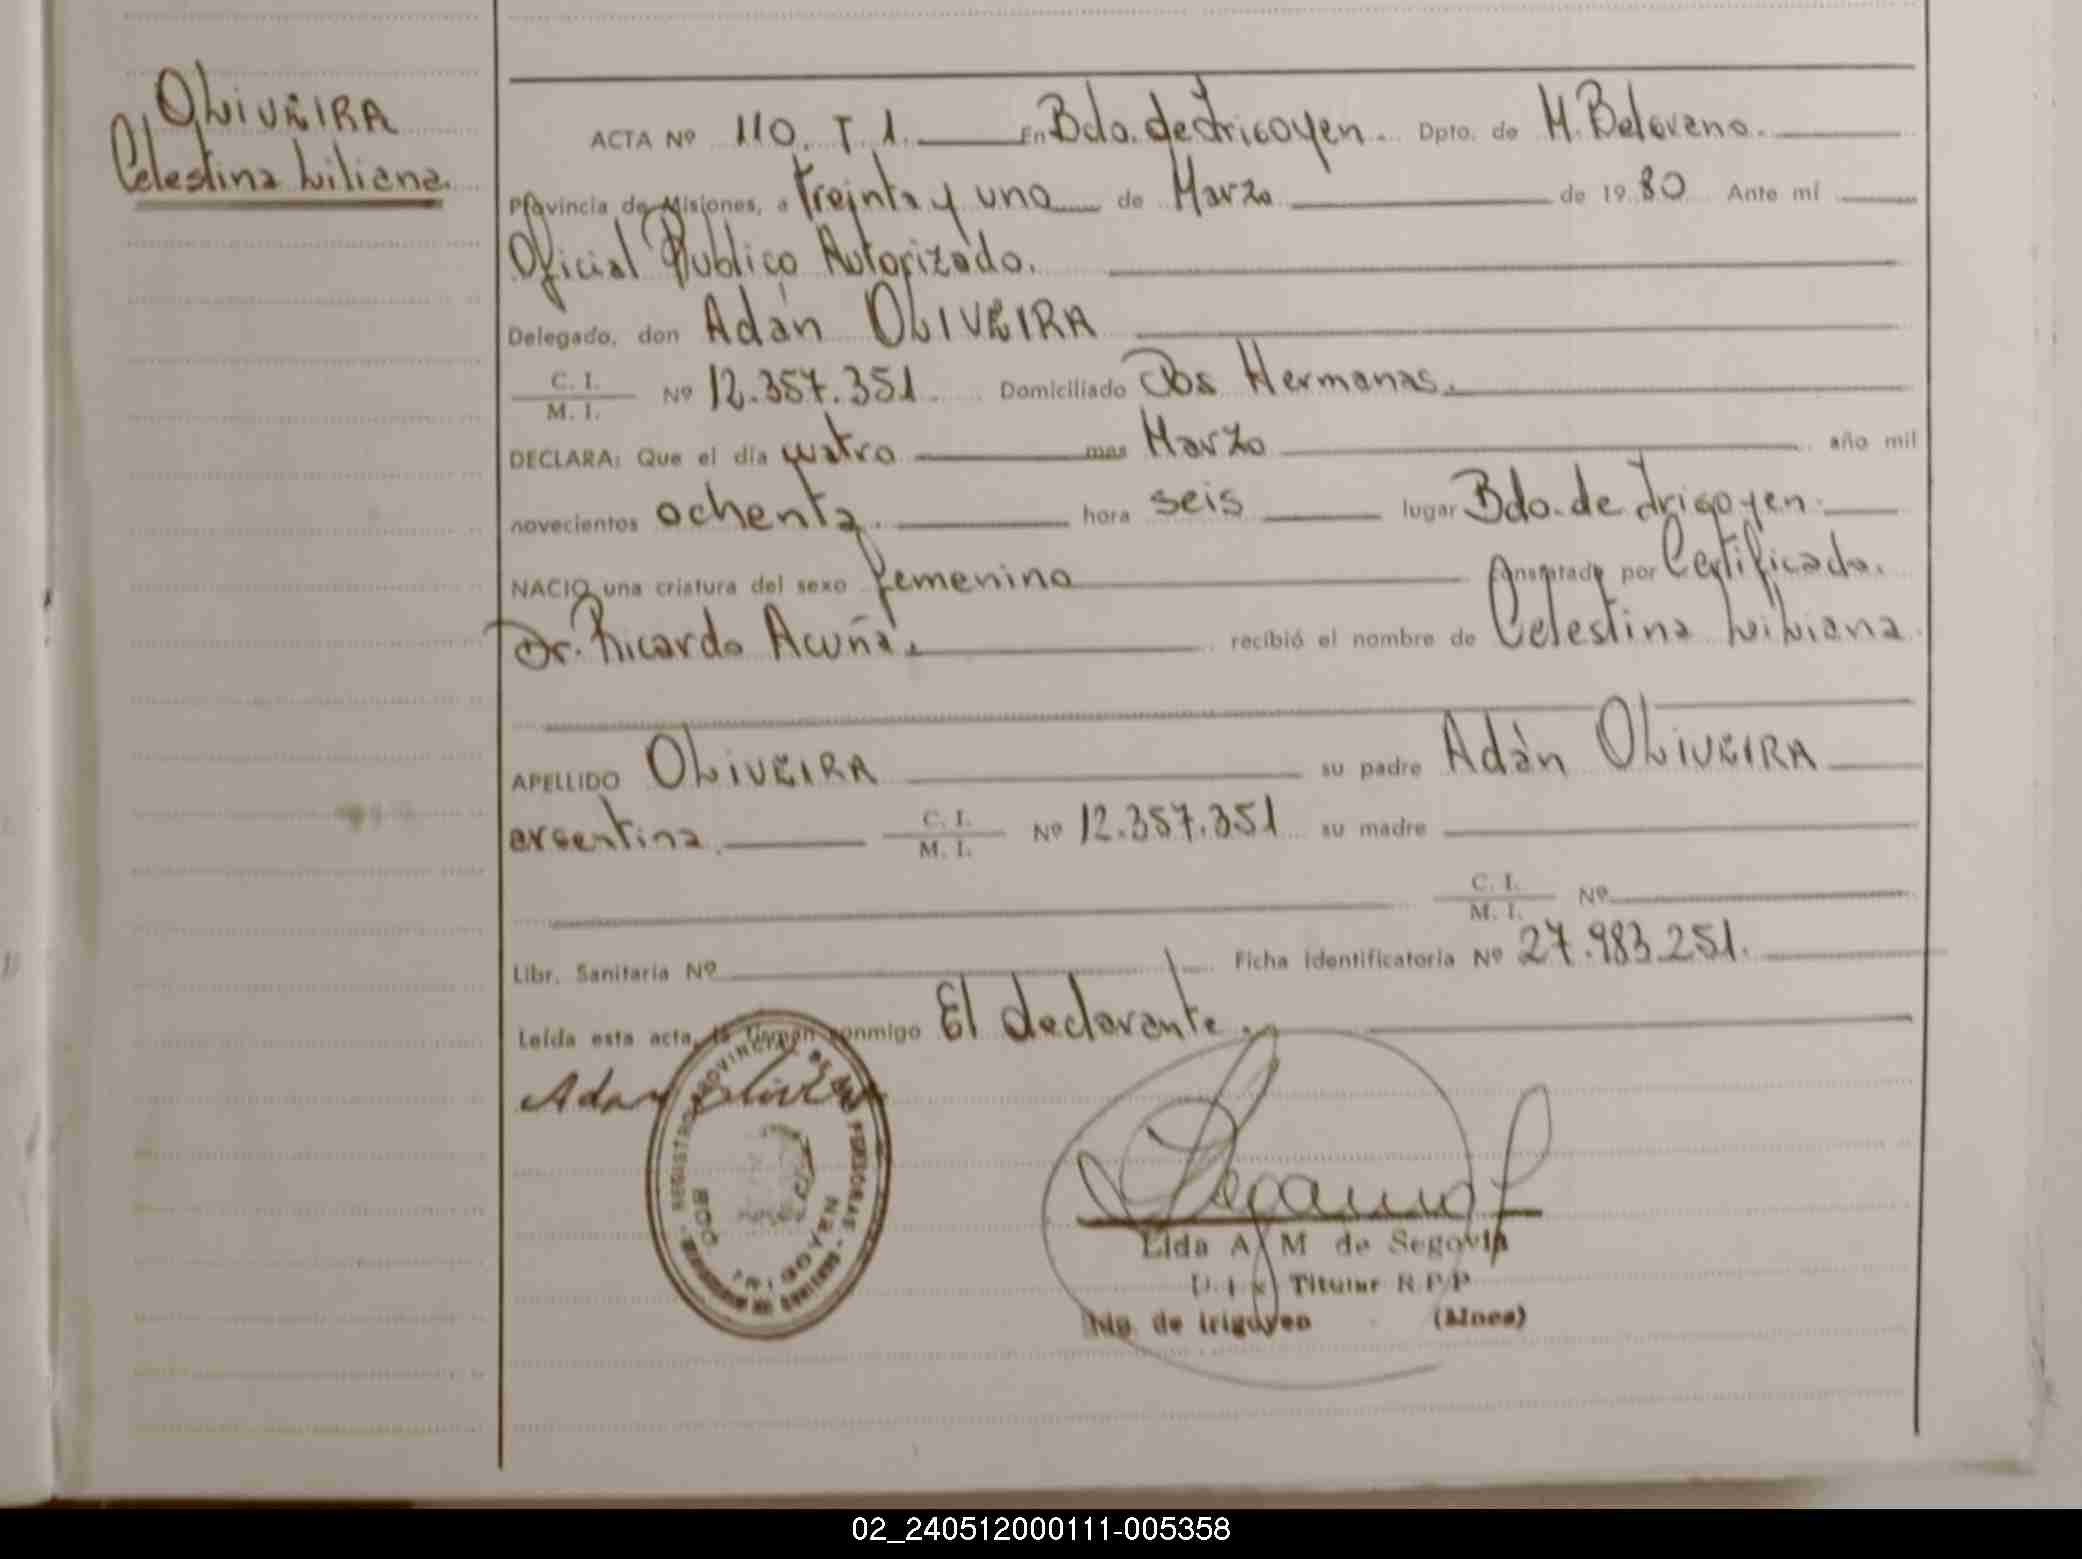 OLIVEIRA
Celestina Liliana.
ACTA Nº 110. T 1. En Bdo. de Irigoyen. Dpto. de M. Belgrano.
Provincia de Misiones, a treinta y uno de Marzo de 1980 Ante mí
Oficial Público Autorizado.
Delegado, don Adán OLIVEIRA
C. I.
M. I. Nº 12.357.351. Domiciliado Dos Hermanas.
DECLARA: Que el día cuatro mes Marzo año mil
novecientos ochenta. hora seis lugar Bdo. de Irigoyen.
NACIO una criatura del sexo femenino Constatado por Certificado.
Dr. Ricardo Acuña. recibió el nombre de Celestina Liliana.
APELLIDO OLIVEIRA su padre Adán OLIVEIRA
argentina. C. I.
M. I. Nº 12.357.351 su madre
C. I.
M. I. Nº
Libr. Sanitaria Nº Ficha identificatoria Nº 27.983.251.
Leída esta acta, la firman conmigo El declarante.
Adan Oliveira
REGISTRO PROVINCIAL DE LAS PERSONAS
BDO
Lida A M de Segovia
Titular R.P.P
de Irigoyen (Mnes)
02_240512000111-005358